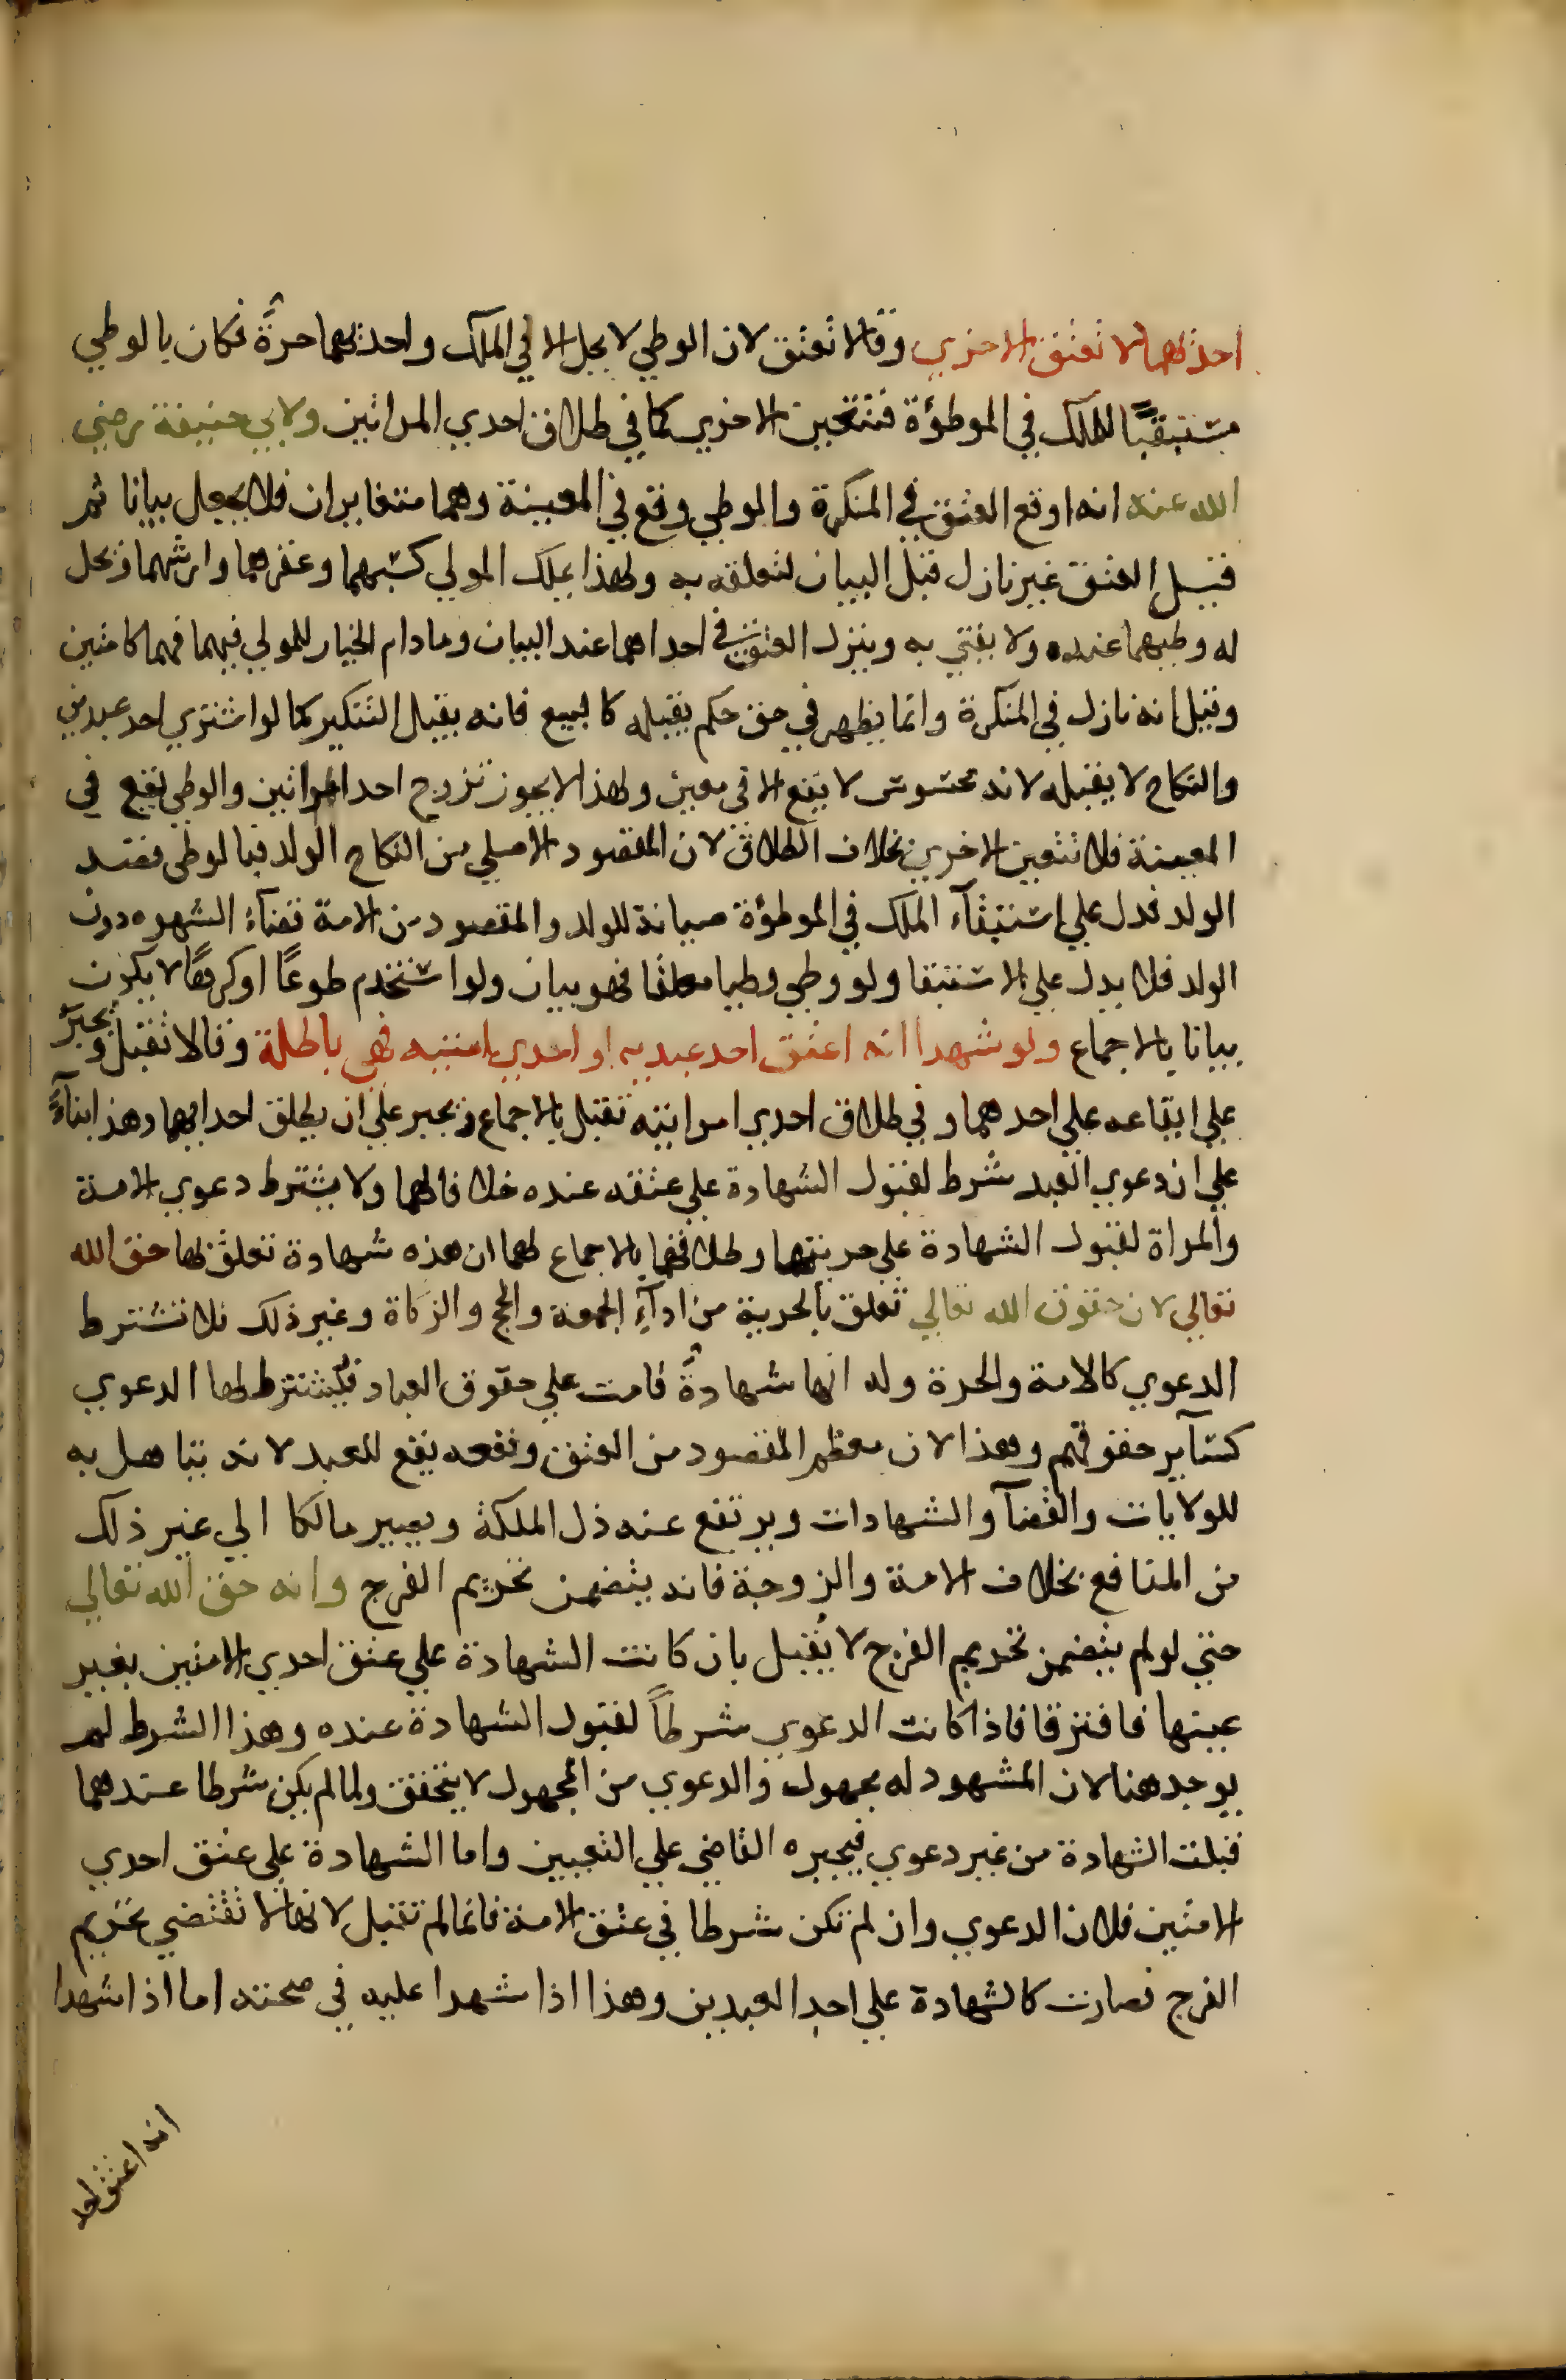 احديهما لا تعتق الاخري وقالا تعتق لان الوطي لا يحل الا في الملك واحديهما حرة فكان بالوطي
مستبقيًا للملك في الموطؤة فتتعين الاخري كما في طلاق احدي المراتين ولابي حنيفة رضي
الله عنه انه اوقع العتق في المنكرة والوطي وقع في المعينة وهما متغايران فلا يجعل بيانا ثم
قيل العتق غير نازل قبل البيان لتعلقه به ولهذا يملك المولي كسبهما وعقرهما وارشهما ويحل
له وطيهما عنده ولا يفتي به وينزل العتق في احداهما عند البيان وما دام الخيار للمولي فيهما فهما كامتين
وقيل انه نازل في المنكرة وانما يظهر في حق حكم يقبله كالبيع فانه يقبل التنكير كما لو اشتري احد عبدين
والنكاح لا يقبله لانه محسوس لا يقع الا في معين ولهذا لا يجوز تزويج احد المراتين والوطي يقع في
المعينة فلا تتعين الاخري بخلاف الطلاق لان المقصود الاصلي من النكاح الولد فبالوطي قصد
الولد فدل علي استبقآء الملك في الموطؤة صيانة للولد والمقصود من الامة قضآء الشهوه دون
الولد فلا يدل علي الاستبقا ولو وطي وطيا معلقا فهو بيان ولو استخدم طوعًا او كرهًا لا يكون
بيانا بالاجماع ولو شهدا انه اعتق احد عبديه او احدي امتيه فهي باطلة وقالا تقبل ويجبر
علي ايقاعه علي احدهما وفي طلاق احدي امراتيه تقبل بالاجماع ويجبر علي ان يطلق احداهما وهذا بنآءً
علي ان دعوي العبد شرط لقبول الشهادة علي عتقه عنده خلافا لهما ولا يشترط دعوي الامة
والمراة لقبول الشهادة علي حريتها وطلاقها بالاجماع لهما ان هذه شهادة تعلق لها حق الله
تعالي لان حقوق الله تعالي تعلق بالحرية من ادآءِ الجمعة والحج والزكاة وغير ذلك فلا تشترط
الدعوي كالامة والحرة وله انها شهادةً قامت علي حقوق العباد فيشترط لها الدعوي
كسآير حقوقهم وهذا لان معظم المقصود من العتق ونفعه يقع للعبد لانه يتاهل به
للولايات والقضآ والشهادات ويرتفع عنه ذل الملكة ويصير مالكا الي غير ذلك
من المنافع بخلاف الامة والزوجة فانه يتضمن تحريم الفرج وانه حق الله تعالي
حتي لو لم يتضمن تحريم الفرج لا يُقبل بان كانت الشهادة علي عتق احدي الامتين بغير
عينها فافترقا فاذا كانت الدعوي شرطاً لقبول الشهادة عنده وهذا الشرط لم
يوجد هنا لان المشهود له مجهول والدعوي من المجهول لا يتحقق ولما لم يكن شرطا عندهما
قبلت الشهادة من غير دعوي فيجبره القاضي علي التعيين واما الشهادة علي عتق احدي
الامتين فلان الدعوي وان لم تكن شرطا في عتق الامة فانما لم تقبل لانها لا تقتضي تحريم
الفرج فصارت كالشهادة علي احد العبدين وهذا اذا شهدا عليه في صحته اما اذا شهدا
انه اعتق